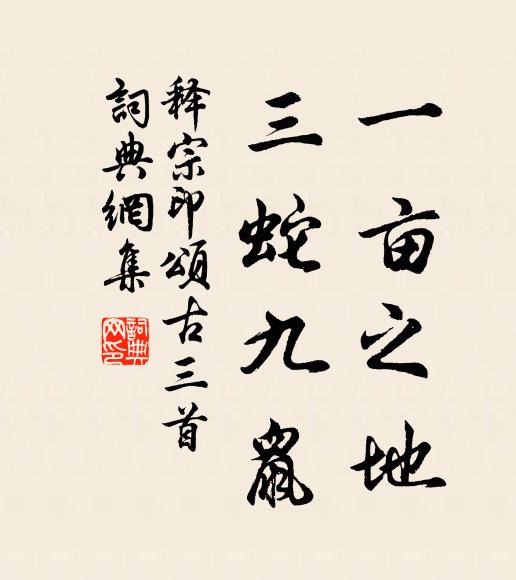 一亩之地
三蛇九鼠
释宗印颂古三首
詞典網集
詞典网印